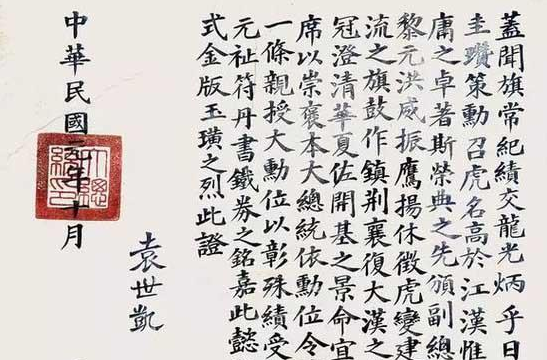 蓋聞旗常紀績交龍光炳乎日
圭瓚策勳召虎名高於江漢惟
庸之卓著斯榮典之先頒副總
黎元洪威振鷹揚休徵虎變建
流之旗鼓作鎮荆襄復大漢之
冠澄清華夏佐開基之景命宜
席以崇褒本大總統依勳位令
一條親授大勳位以彰殊績受
元祉符丹書鐵券之銘嘉此懿
式金版玉璜之烈此證
袁世凱
中華民國年十月
大總統印